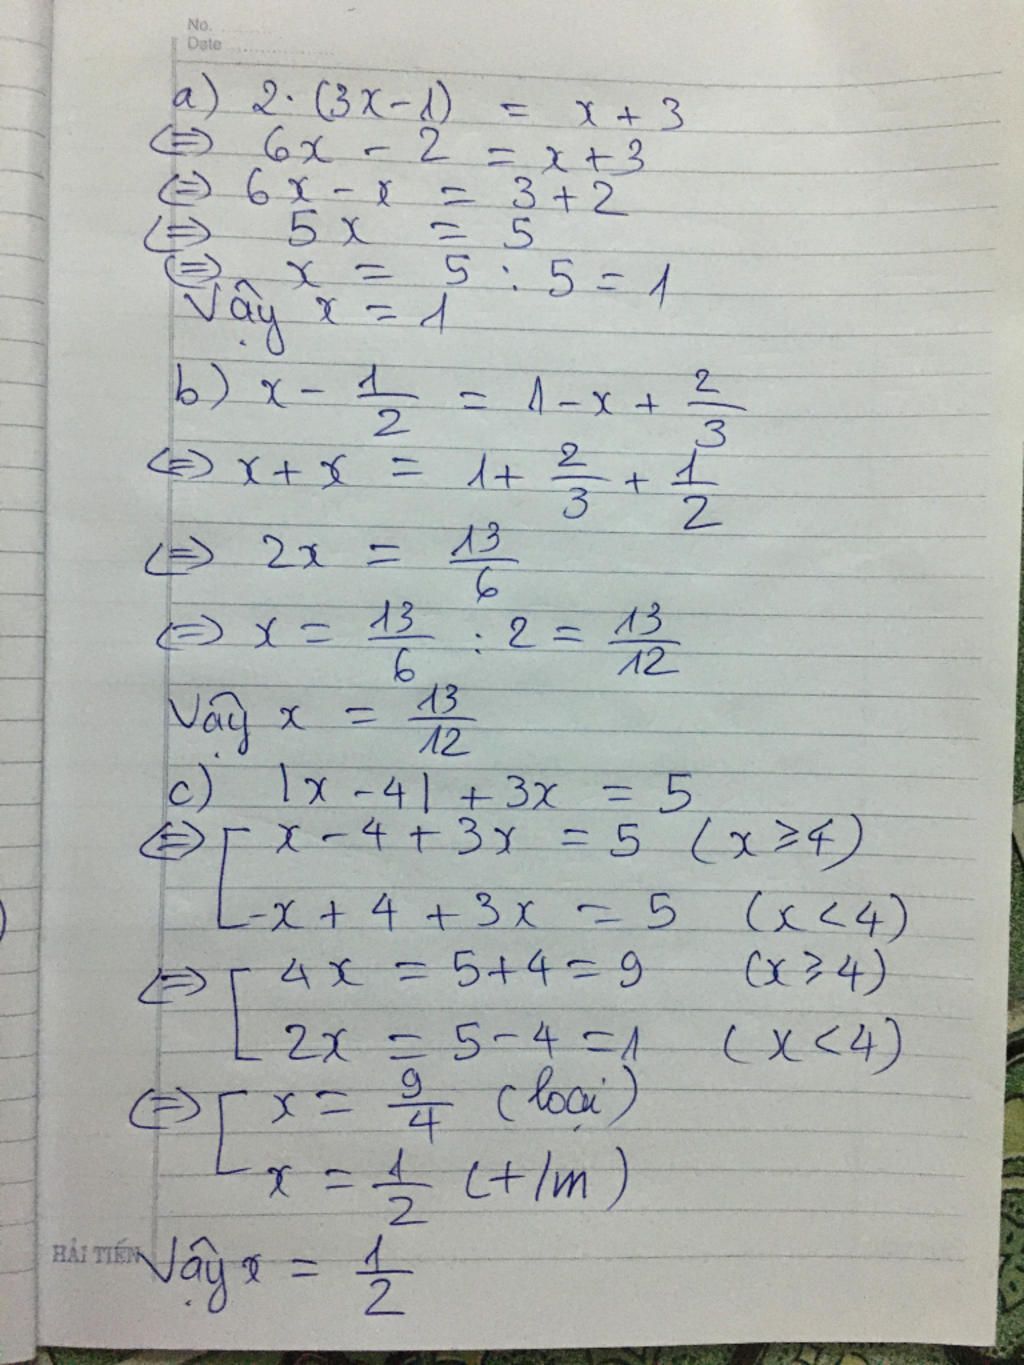 No. ..........
Date ..................
a) 2. (3x - 1) = x + 3
<=> 6x - 2 = x + 3
<=> 6x - x = 3 + 2
<=> 5x = 5
<=> x = 5 : 5 = 1
Vậy x = 1
b) x - 1/2 = 1 - x + 2/3
<=> x + x = 1 + 2/3 + 1/2
<=> 2x = 13/6
<=> x = 13/6 : 2 = 13/12
Vậy x = 13/12
c) |x - 4| + 3x = 5
<=> [ x - 4 + 3x = 5 (x ≥ 4)
-x + 4 + 3x = 5 (x < 4)
<=> [ 4x = 5 + 4 = 9 (x ≥ 4)
2x = 5 - 4 = 1 (x < 4)
<=> [ x = 9/4 (loại)
x = 1/2 (t/m)
HẢI TIẾN
Vậy x = 1/2